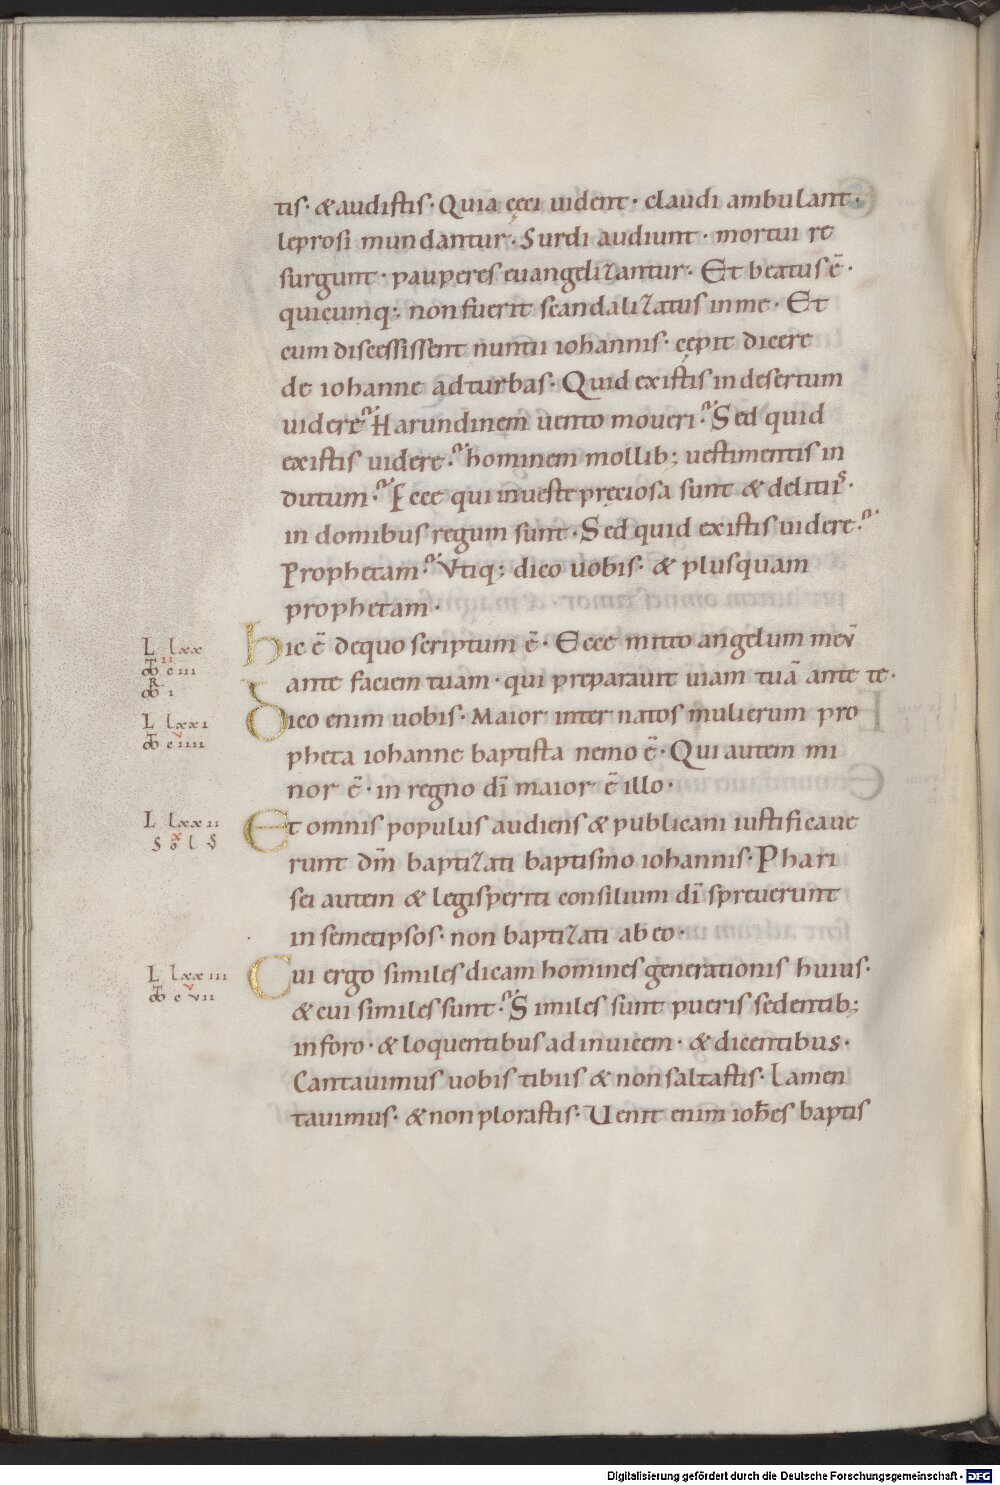 tis· & audistis· Quia cęci uident· claudi ambulant·
leprosi mundantur· Surdi audiunt· mortui re
surgunt· pauperes euangelizantur· Et beatus ē·
quicumq; non fuerit scandalizatus in me· Et
cum discessissent nuntii iohannis· cępit dicere
de iohanne ad turbas· Quid existis in desertum
uidere? Harundinem uento moueri? Sed quid
existis uidere? hominem mollib; uestimentis in
dutum? Ecce qui in ueste pręciosa sunt & delitiis·
in domibus regum sunt· Sed quid existis uidere?
Prophetam? Vtiq; dico uobis· & plus quam
prophetam·
L lxx
hic ē de quo scriptum ē· Ecce mitto angelum meū
II
M c III
R
M I
ante faciem tuam· qui preparauit uiam tuā ante te·
L lxxI
dico enim uobis· Maior inter natos mulierum pro
V
M c IIII
pheta iohanne baptista nemo ē· Qui autem mi
nor ē· in regno dī maior ē illo·
L lxxII
Et omnis populus audiens & publicani iustificaue
X
S o l S
runt dm̄ baptizati baptismo iohannis· Phari
sei autem & legisperiti consilium dī spreuerunt
in semetipsos· non baptizati ab eo·
L lxxIII
Cui ergo similes dicam homines generationis huius·
V
M c VII
& cui similes sunt? Similes sunt pueris sedentib;
in foro· & loquentibus ad inuicem· & dicentibus·
Cantauimus uobis tibiis & non saltastis· Lamen
tauimus· & non plorastis· Uenit enim ioh̄es baptis
Digitalisierung gefördert durch die Deutsche Forschungsgemeinschaft - DFG